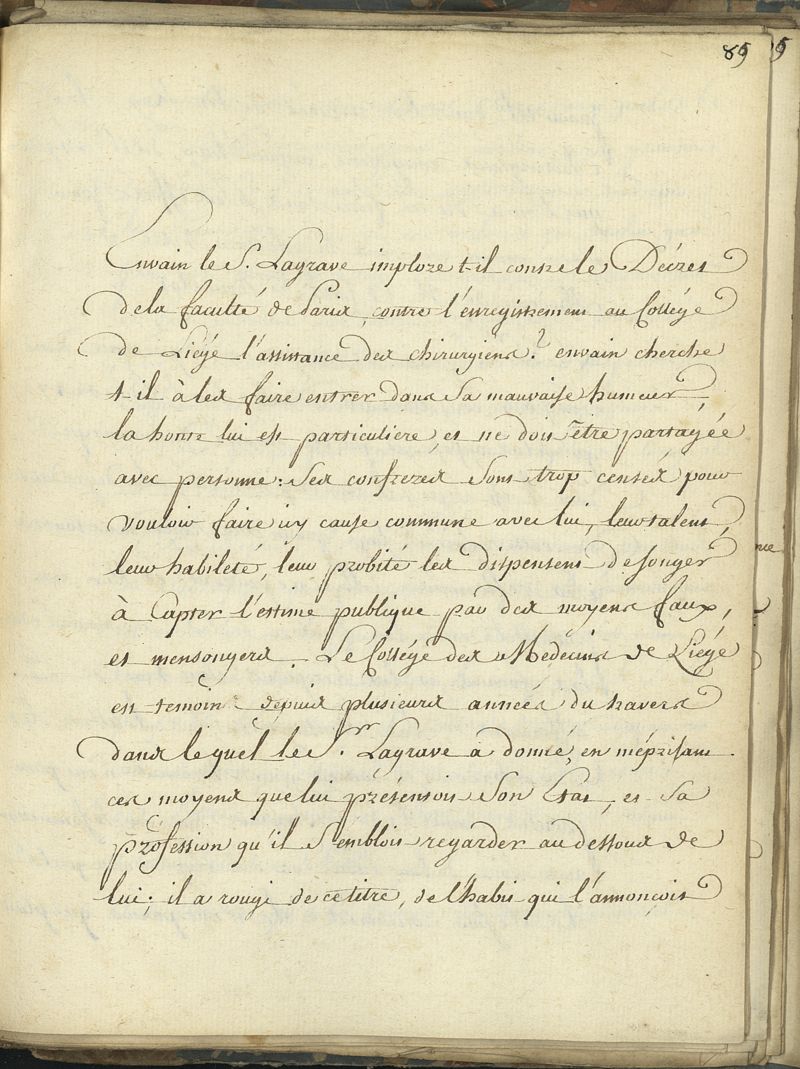 85
Envain le S. Lagrave implore t-il contre le Décret
de la faculté de Paris, contre l'enregistrement au Collége
de Liége l'assistance des chirurgiens? envain cherche
t il à les faire entrer dans sa mauvaise humeur,
la honte lui est particuliere, et ne doit être partagée
avec personne: ses confreres sont trop censés pour
vouloir faire icy cause commune avec lui, leur talent,
leur habileté, leur probité les dispensent de songer
à Capter l'estime publique par des moyens faux,
et mensongers. Le Collége des Medecins de Liége
est temoin depuis plusieurs années du travers
dans lequel le S.r Lagrave a donné, en méprisant
ces moyens que lui présentoit son Etat, et sa
profession qu'il sembloit regarder au dessous de
lui; il a rougi de ce titre, de l'habit qui l'annonçoit